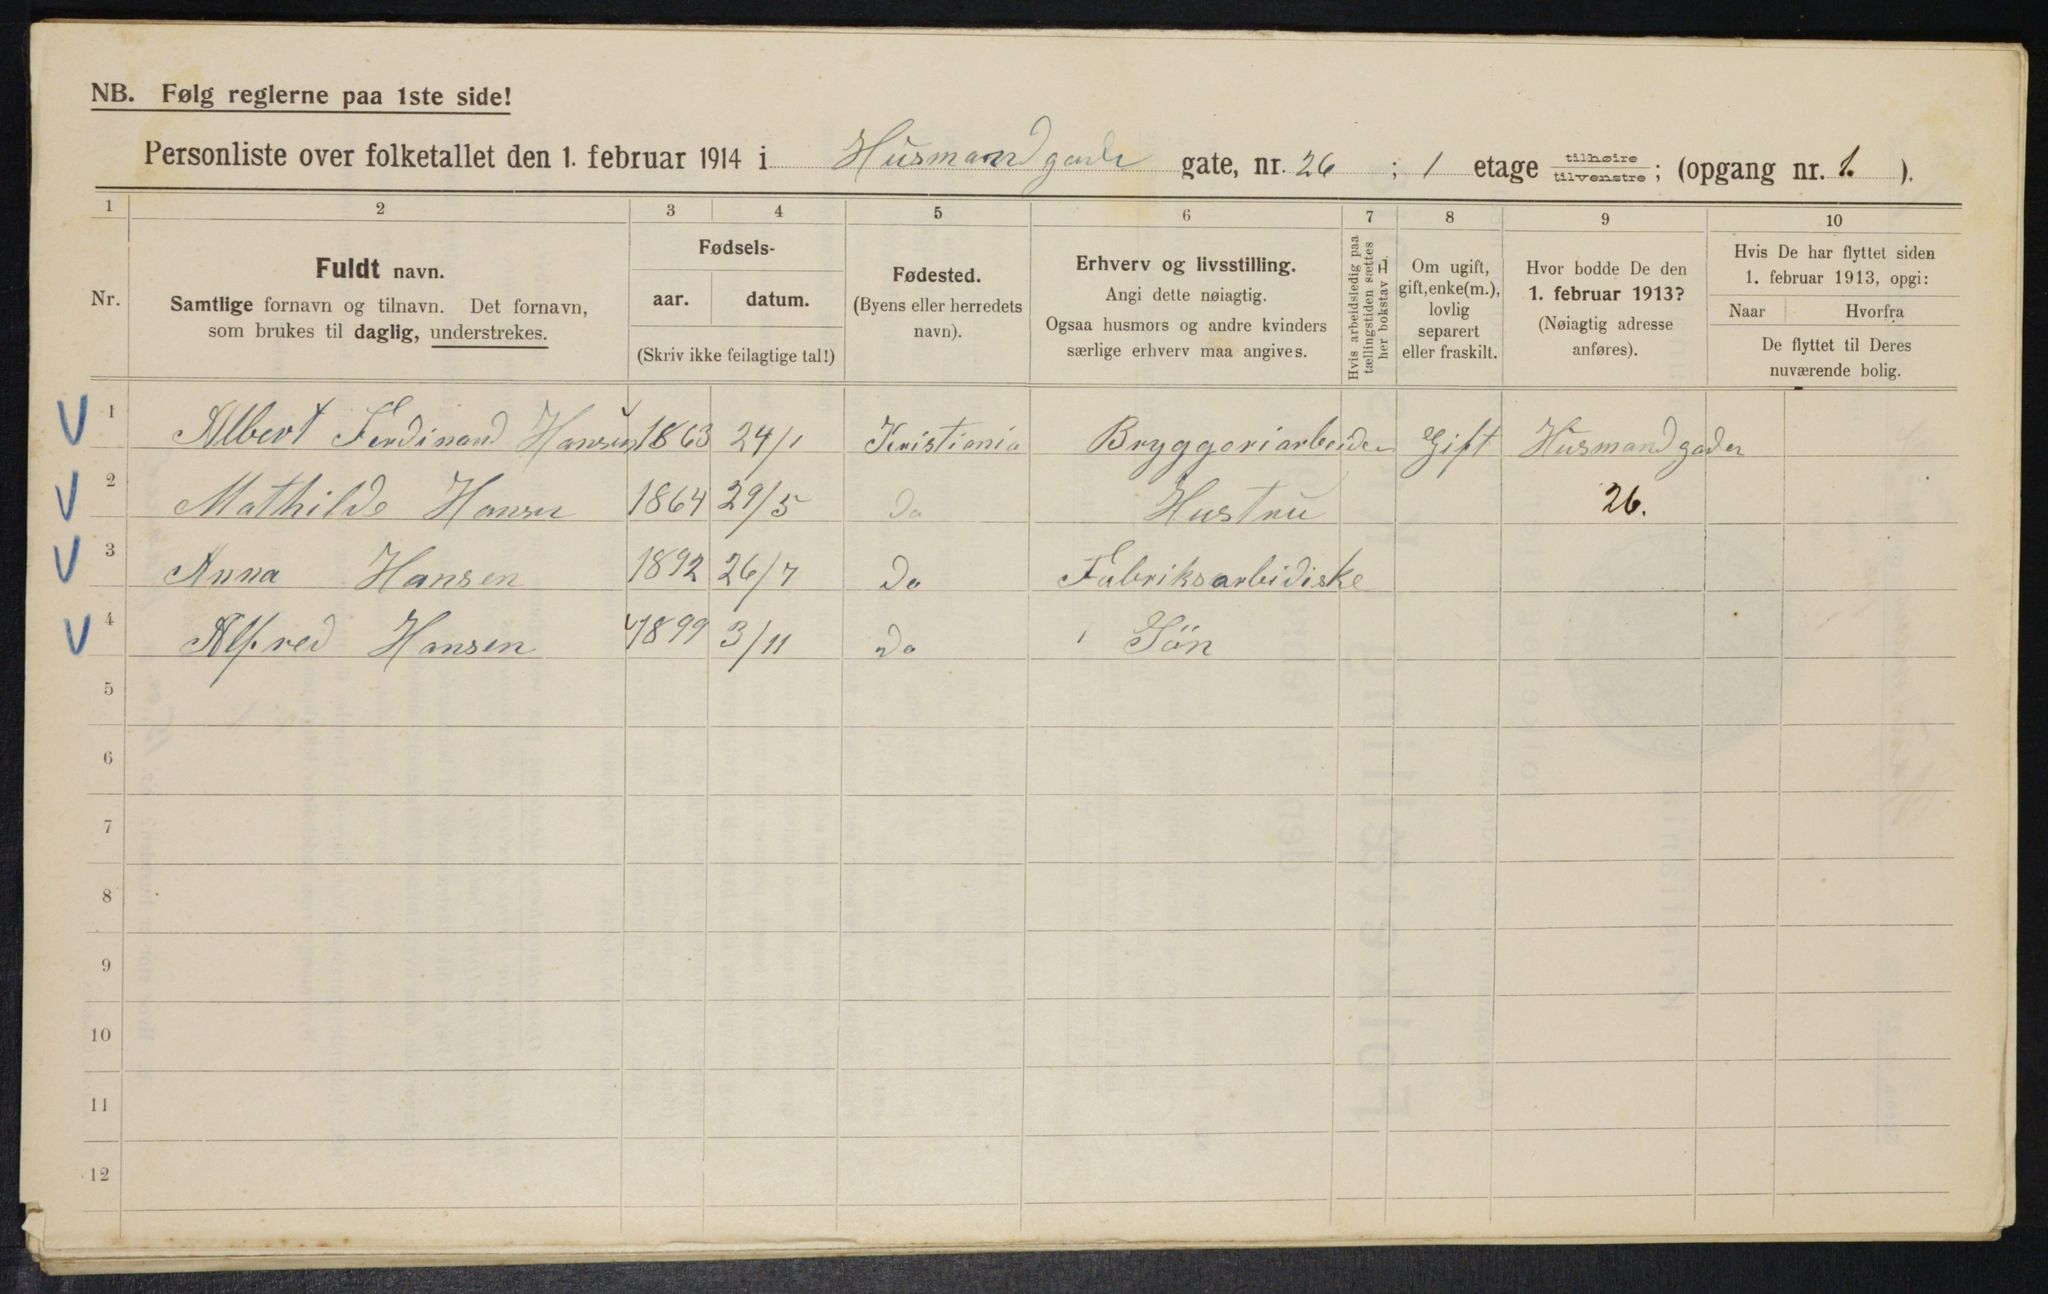 NB. Følg reglerne paa 1ste side!
Personliste over folketallet den 1. februar 1914 i Husmandgade gate, nr. 26 ; 1 etage tilhøire / tilvenstre; (opgang nr. 1. ).
1 2 3 4 5 6 7 8 9 10
Nr.
Fuldt navn.
Samtlige fornavn og tilnavn. Det fornavn,
som brukes til daglig, understrekes.
Fødsels-
aar. datum.
(Skriv ikke feilagtige tal!)
Fødested.
(Byens eller herredets
navn).
Erhverv og livsstilling.
Angi dette nøiagtig.
Ogsaa husmors og andre kvinders
særlige erhverv maa angives.
Hvis arbeidsledig paa
tællingstiden sættes
her bokstav A.
Om ugift,
gift, enke(m.),
lovlig
separert
eller fraskilt.
Hvor bodde De den
1. februar 1913?
(Nøiagtig adresse
anføres).
Hvis De har flyttet siden
1. februar 1913, opgi:
Naar Hvorfra
De flyttet til Deres
nuværende bolig.
1 Albert Ferdinand Hansen 1863 24/1 Kristiania Bryggeriarbeider Gift Husmandgaden
2 Mathilde Hansen 1864 29/5 do Hustru 26.
3 Anna Hansen 1892 26/7 do Fabriksarbidiske
4 Alfred Hansen 1899 3/11 do Sön
5
6
7
8
9
10
11
12